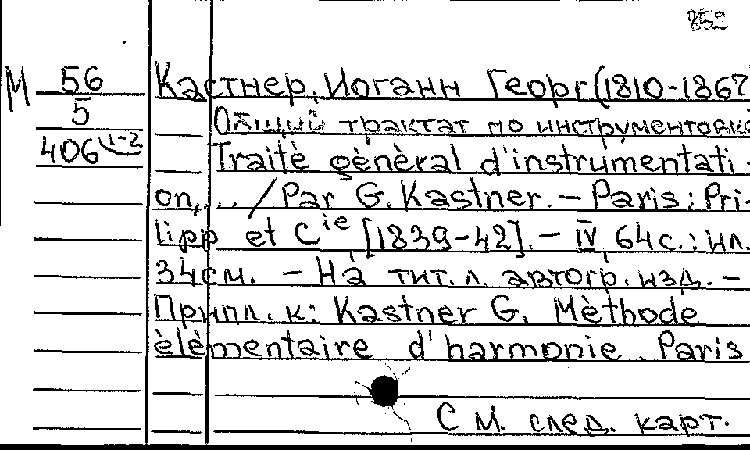 M 56 Кастнер, Иоганн Георг (1810-1867
5 Общий трактат по инструментовке
406 1-2 Traitè gènèral d'instrumentati-
on,.. / Par G. Kastner. – Paris: Pri-
lipp et Cie [1839-42]. – IV, 64 с.: ил.
34 см. – На тит. л. автогр. изд. –
Припл. к: Kastner G. Mèthode
èlèmentaire d'harmonie. Paris
См. след. карт.